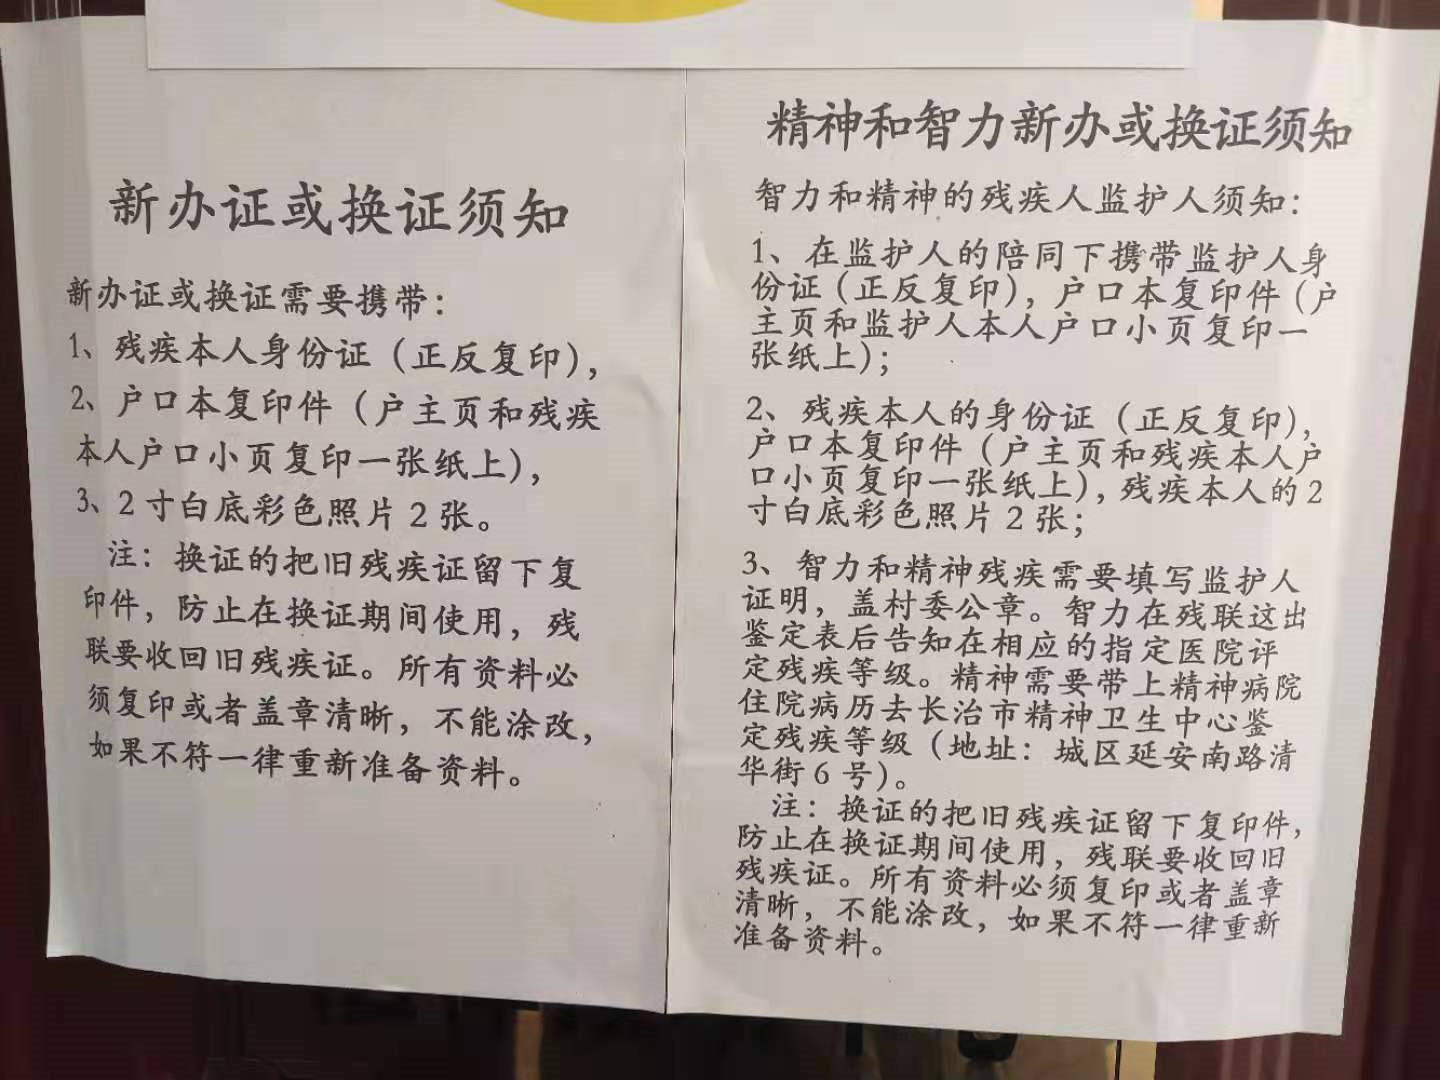 新办证或换证须知
新办证或换证需要携带：
1、残疾本人身份证（正反复印），
2、户口本复印件（户主页和残疾
本人户口小页复印一张纸上），
3、2寸白底彩色照片2张。
注：换证的把旧残疾证留下复
印件，防止在换证期间使用，残
联要收回旧残疾证。所有资料必
须复印或者盖章清晰，不能涂改，
如果不符一律重新准备资料。
精神和智力新办或换证须知
智力和精神的残疾人监护人须知：
1、在监护人的陪同下携带监护人身
份证（正反复印），户口本复印件（户
主页和监护人本人户口小页复印一
张纸上）；
2、残疾本人的身份证（正反复印），
户口本复印件（户主页和残疾本人户
口小页复印一张纸上），残疾本人的2
寸白底彩色照片2张；
3、智力和精神残疾需要填写监护人
证明，盖村委公章。智力在残联这出
鉴定表后告知在相应的指定医院评
定残疾等级。精神需要带上精神病院
住院病历去长治市精神卫生中心鉴
定残疾等级（地址：城区延安南路清
华街6号）。
注：换证的把旧残疾证留下复印件，
防止在换证期间使用，残联要收回旧
残疾证。所有资料必须复印或者盖章
清晰，不能涂改，如果不符一律重新
准备资料。